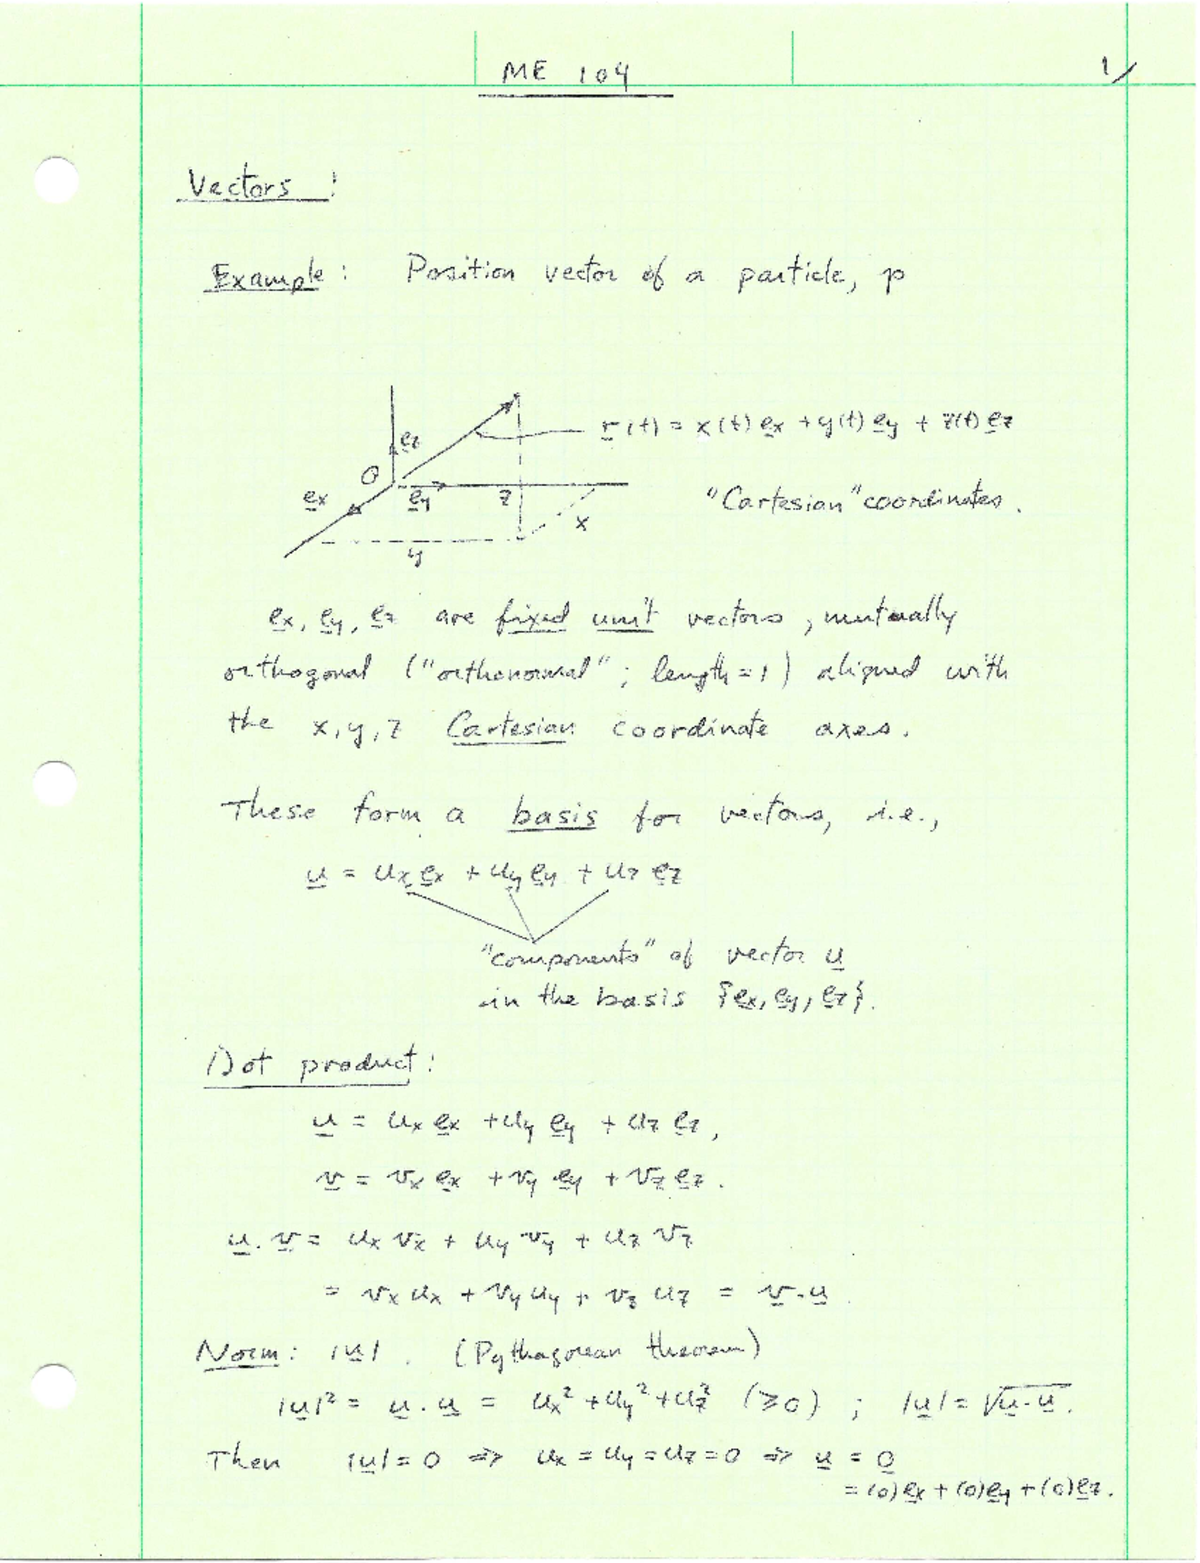 ME 104
1/
Vectors :
Example : Position vector of a particle, p
r(t) = x(t) ex + y(t) ey + z(t) ez
ez
O
ex
ey
z
x
y
"Cartesian" coordinates.
ex, ey, ez are fixed unit vectors, mutually
orthogonal ("orthonormal"; length = 1) aligned with
the x, y, z Cartesian coordinate axes.
These form a basis for vectors, i.e.,
u = ux ex + uy ey + uz ez
"components" of vector u
in the basis {ex, ey, ez}.
Dot product :
u = ux ex + uy ey + uz ez,
v = vx ex + vy ey + vz ez.
u . v = ux vx + uy vy + uz vz
= vx ux + vy uy + vz uz = v . u .
Norm : |u| . (Pythagorean theorem)
|u|² = u . u = ux² + uy² + uz² (≥0) ; |u| = √u . u .
Then |u| = 0 ⇒ ux = uy = uz = 0 ⇒ u = 0
= (0) ex + (0) ey + (0) ez .